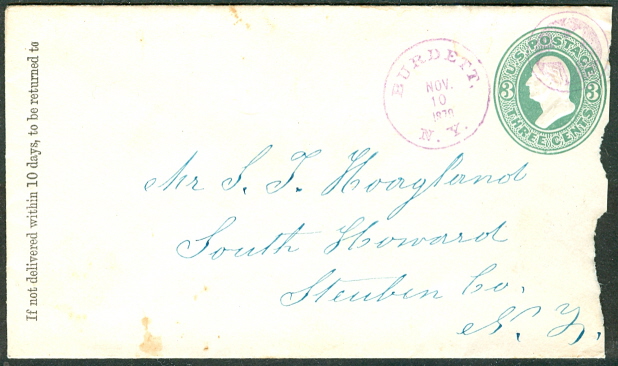 If not delivered within 10 days, to be returned to
BURDETT.
NOV.
10
N.Y.
U.S. POSTAGE
3 3
THREE CENTS
Mr S. T. Hoagland
South Howard
Steuben Co.
N. Y.